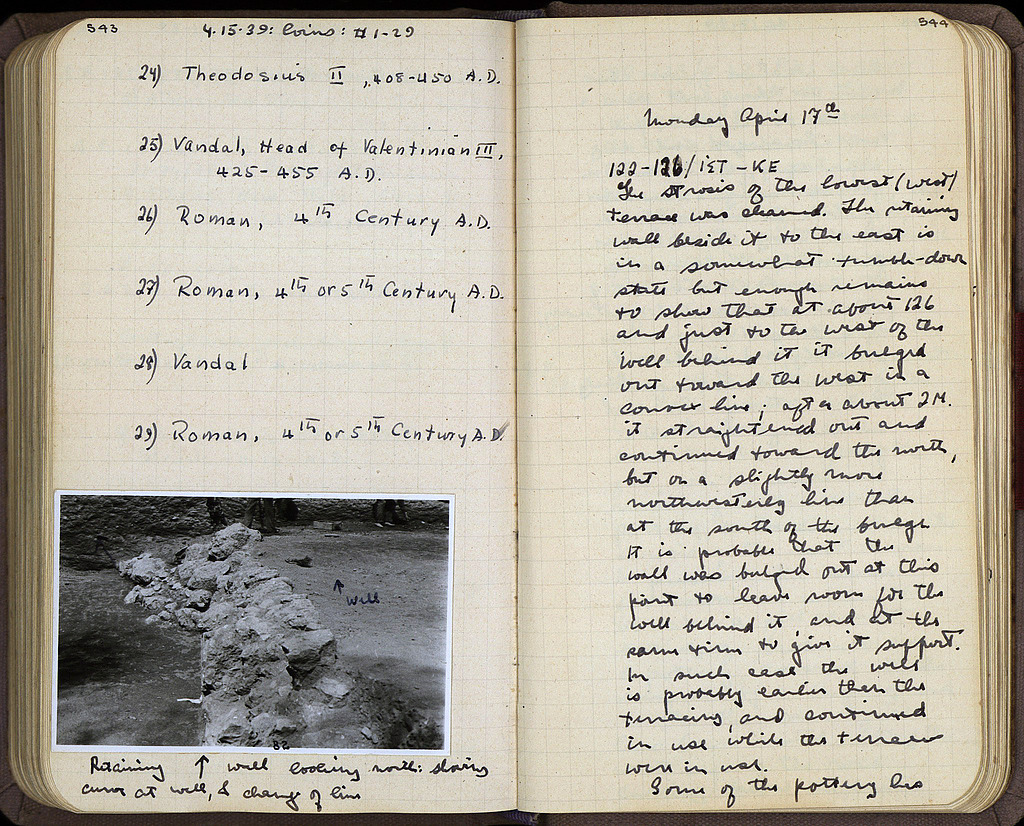 543
4.15.39: Coins: #1-29
24) Theodosius II, 408-450 A.D.
25) Vandal, Head of Valentinian III,
425-455 A.D.
26) Roman, 4th Century A.D.
27) Roman, 4th or 5th Century A.D.
28) Vandal
29) Roman, 4th or 5th Century A.D.
↑
Well
82
Retaining ↑ wall looking north: showing
curve at well, & change of line
544
Monday April 17th
122-126/ΙΣΤ-ΚΕ
The strosis of the lowest (west)
terrace was cleaned. The retaining
wall beside it to the east is
in a somewhat tumble-down
state but enough remains
to show that at about 126
and just to the west of the
well behind it it bulged
out toward the west in a
convex line; after about 2 M.
it straightened out and
continued toward the north,
but on a slightly more
northwesterly line than
at the south of the bulge
It is probable that the
wall was bulged out at this
point to leave room for the
well behind it, and at the
same time to give it support.
In such case the well
is probably earlier than the
terracing, and continued
in use while the terraces
were in use.
Some of the pottery has